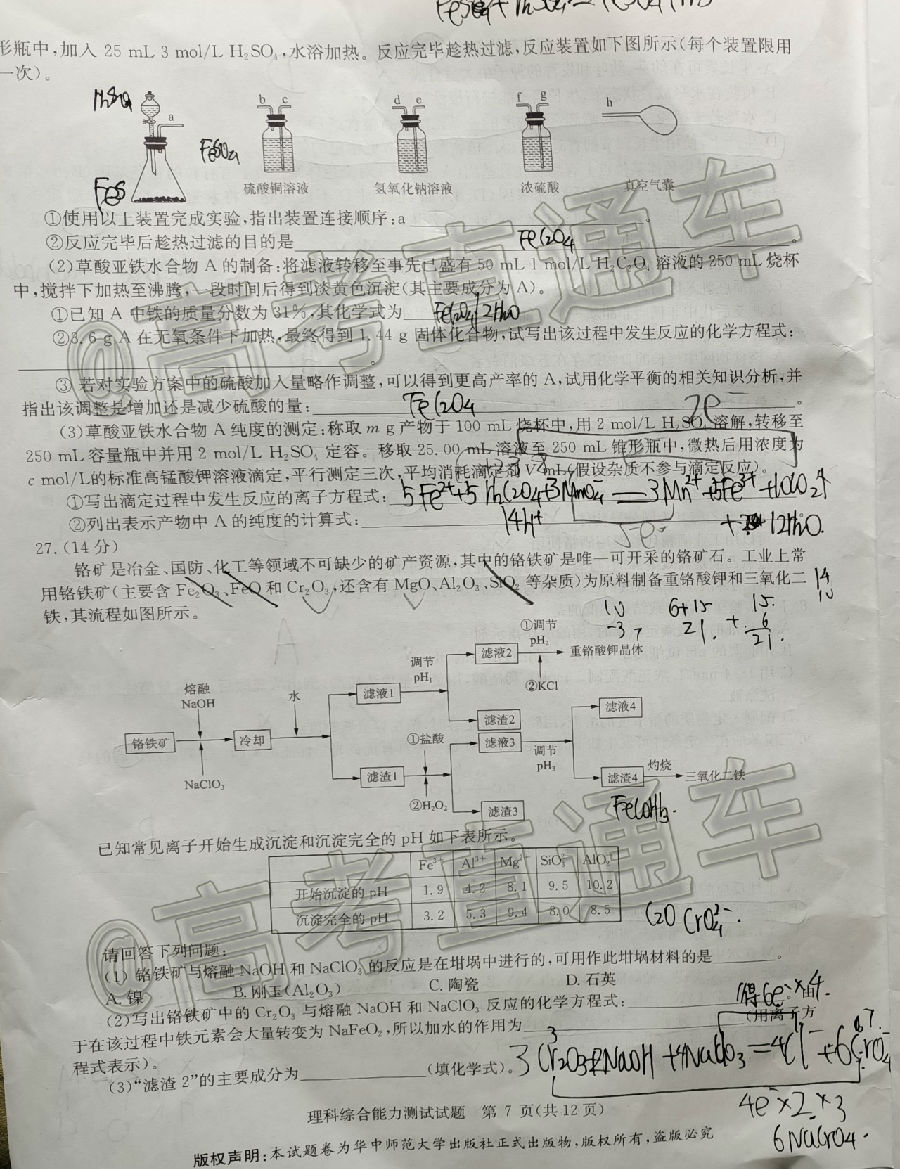 形瓶中,加入 25 mL 3 mol/L H₂SO₄,水浴加热。反应完毕趁热过滤,反应装置如下图所示(每个装置限用
一次)。
a
b c
d e
f g
h
FeSO₄
FeS
硫酸铜溶液
氢氧化钠溶液
浓硫酸
真空气囊
①使用以上装置完成实验,指出装置连接顺序:a
。
②反应完毕后趁热过滤的目的是
FeC₂O₄
。
(2)草酸亚铁水合物 A 的制备:将滤液转移至事先已盛有 50 mL 1 mol/L H₂C₂O₄ 溶液的 250 mL 烧杯
中,搅拌下加热至沸腾,一段时间后得到淡黄色沉淀(其主要成分为 A)。
①已知 A 中铁的质量分数为 31%,其化学式为
FeC₂O₄·2H₂O
②3.6 g A 在无氧条件下加热,最终得到 1.44 g 固体化合物,试写出该过程中发生反应的化学方程式:
。
③ 若对实验方案中的硫酸加入量略作调整,可以得到更高产率的 A,试用化学平衡的相关知识分析,并
指出该调整是增加还是减少硫酸的量:
FeC₂O₄
2e⁻
。
(3)草酸亚铁水合物 A 纯度的测定:称取 m g 产物于 100 mL 烧杯中,用 2 mol/L H₂SO₄ 溶解,转移至
250 mL 容量瓶中并用 2 mol/L H₂SO₄ 定容。移取 25.00 mL 溶液至 250 mL 锥形瓶中,微热后用浓度为
c mol/L的标准高锰酸钾溶液滴定,平行测定三次,平均消耗滴定剂 V mL(假设杂质不参与滴定反应)。
①写出滴定过程中发生反应的离子方程式:
②列出表示产物中 A 的纯度的计算式:
14H⁺
5e⁻
27.(14 分)
铬矿是冶金、国防、化工等领域不可缺少的矿产资源,其中的铬铁矿是唯一可开采的铬矿石。工业上常
用铬铁矿(主要含 Fe₂O₃、FeO 和 Cr₂O₃,还含有 MgO、Al₂O₃、SiO₂ 等杂质)为原料制备重铬酸钾和三氧化二
铁,其流程如图所示。
14
10
6+15
21.
15.
+ 6
21.
铬铁矿
熔融
NaOH
NaClO₃
冷却
水
滤液1
滤渣1
调节
pH₁
①盐酸
②H₂O₂
滤液2
滤渣2
滤液3
滤渣3
①调节
pH₂
②KCl
重铬酸钾晶体
调节
pH₃
滤液4
滤渣4
灼烧
三氧化二铁
Fe(OH)₃.
已知常见离子开始生成沉淀和沉淀完全的 pH 如下表所示。
Fe³⁺ Al³⁺ Mg²⁺ SiO₃²⁻ AlO₂⁻
开始沉淀的 pH 1.9 4.2 8.1 9.5 10.2
沉淀完全的 pH 3.2 5.3 9.4 8.0 8.5
CrO₄²⁻.
请回答下列问题:
(1) 铬铁矿与熔融 NaOH 和 NaClO₃ 的反应是在坩埚中进行的,可用作此坩埚材料的是 。
A. 镍 B. 刚玉(Al₂O₃) C. 陶瓷 D. 石英
(2)写出铬铁矿中的 Cr₂O₃ 与熔融 NaOH 和 NaClO₃ 反应的化学方程式:
得6e⁻×4.
于在该过程中铁元素会大量转变为 NaFeO₂,所以加水的作用为 (用离子方
程式表示)。
(3)“滤渣 2”的主要成分为 (填化学式)。
4e⁻×2×3
理科综合能力测试试题 第 7 页(共 12 页)
版权声明:本试题卷为华中师范大学出版社正式出版物,版权所有,盗版必究
@高考直通车
@高考直通车